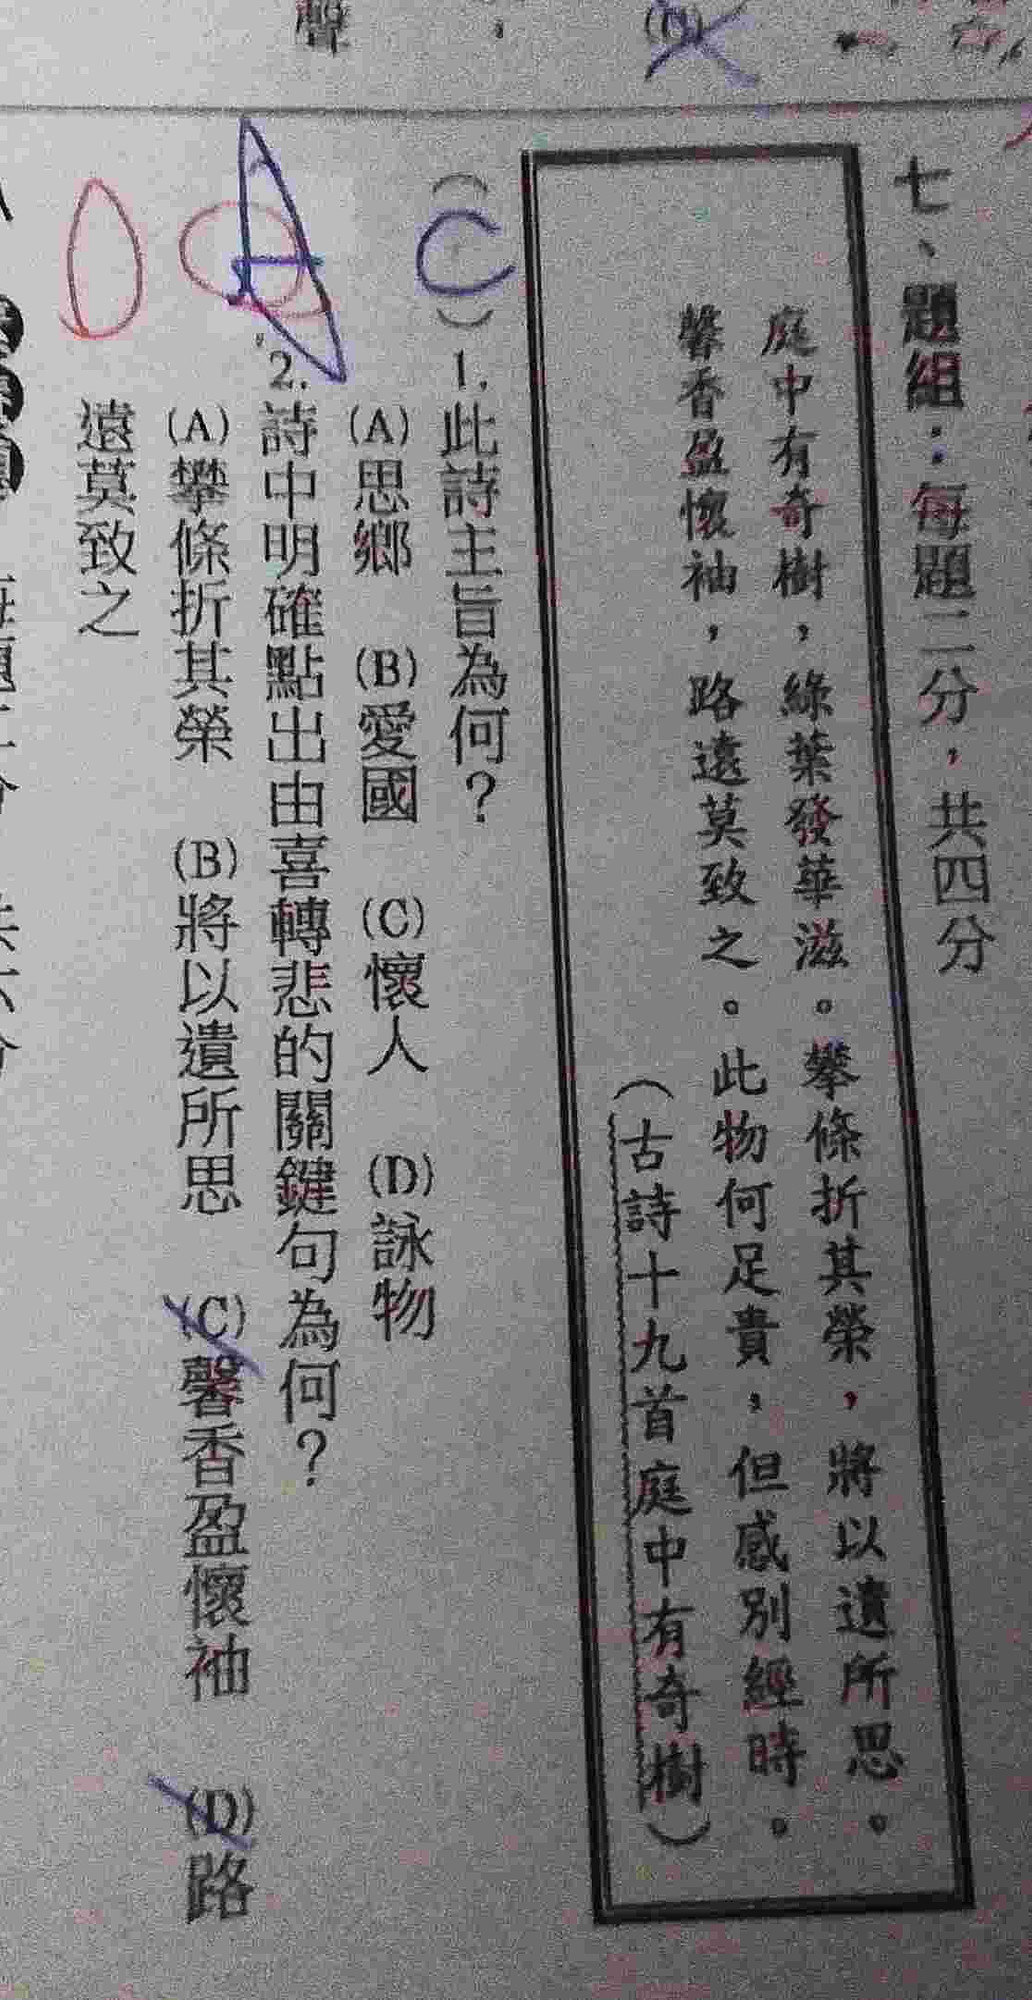 七、題組：每題二分，共四分
庭中有奇樹，綠葉發華滋。攀條折其榮，將以遺所思。
馨香盈懷袖，路遠莫致之。此物何足貴，但感別經時。
（古詩十九首庭中有奇樹）
（C）1.此詩主旨為何？
(A)思鄉 (B)愛國 (C)懷人 (D)詠物
2.詩中明確點出由喜轉悲的關鍵句為何？
(A)攀條折其榮 (B)將以遺所思 (C)馨香盈懷袖 (D)路
遠莫致之